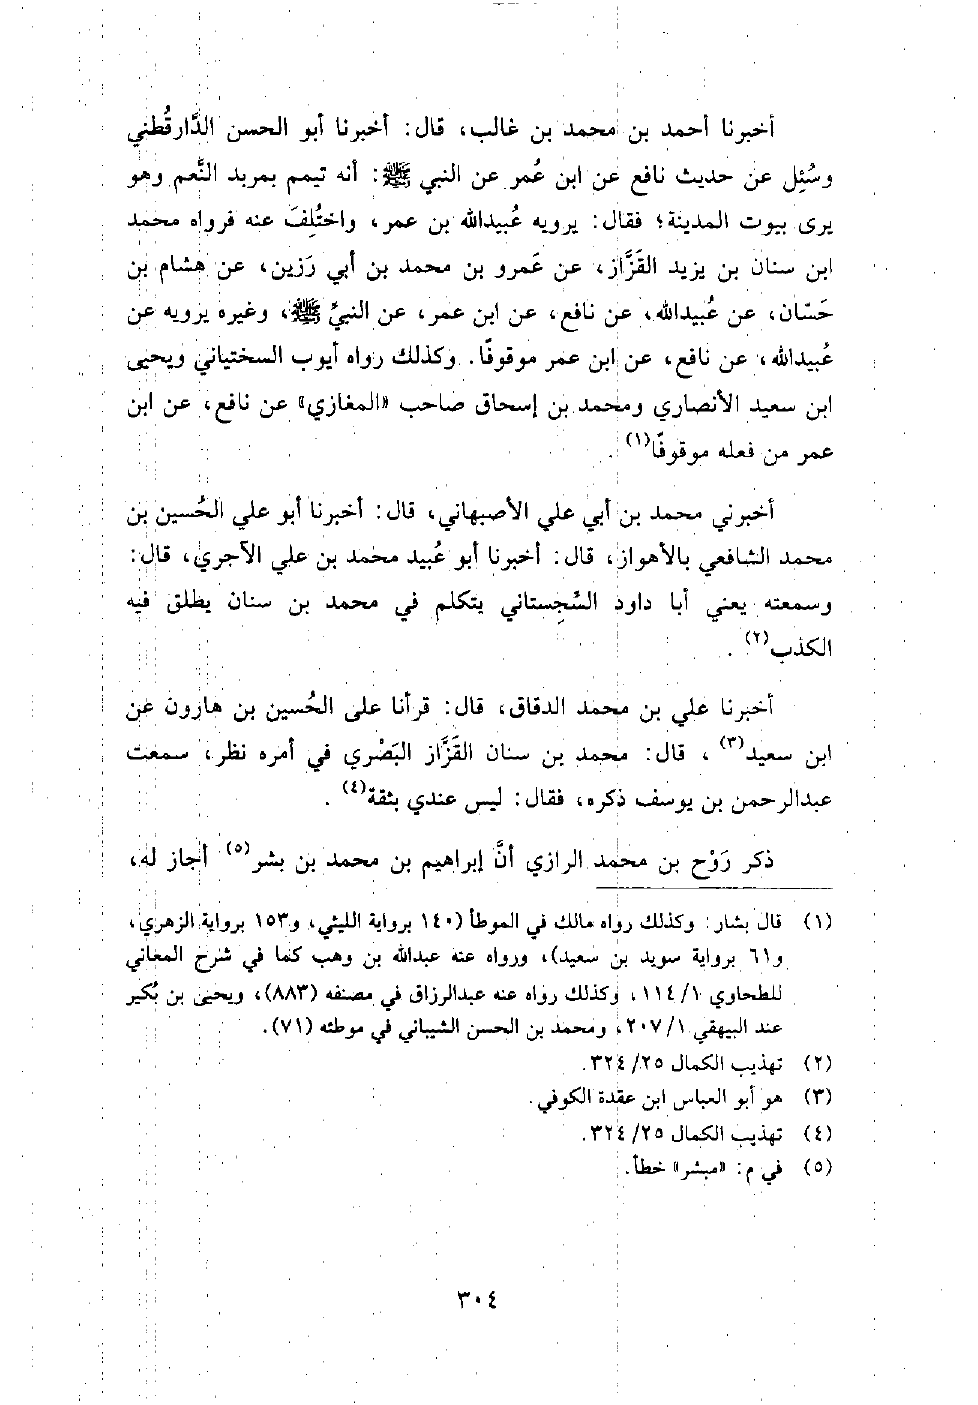 أخبرنا أحمد بن محمد بن غالب، قال: أخبرنا أبو الحسن الدَّارقُطني
وسُئِل عن حديث نافع عن ابن عُمر عن النبي ﷺ: أنه تيمم بمربد النَّعم وهو
يرى بيوت المدينة؛ فقال: يرويه عُبيدالله بن عمر، واختُلِفَ عنه فرواه محمد
ابن سنان بن يزيد القَزَّاز، عن عَمرو بن محمد بن أبي رَزين، عن هشام بن
حَسّان، عن عُبيدالله، عن نافع، عن ابن عمر، عن النبيِّ ﷺ، وغيره يرويه عن
عُبيدالله، عن نافع، عن ابن عمر موقوفًا. وكذلك رواه أيوب السختياني ويحيى
ابن سعيد الأنصاري ومحمد بن إسحاق صاحب «المغازي» عن نافع، عن ابن
عمر من فعله موقوفًا(١).
أخبرني محمد بن أبي علي الأصبهاني، قال: أخبرنا أبو علي الحُسين بن
محمد الشافعي بالأهواز، قال: أخبرنا أبو عُبيد محمد بن علي الآجري، قال:
وسمعته يعني أبا داود السِّجِستاني يتكلم في محمد بن سنان يطلق فيه
الكذب(٢).
أخبرنا علي بن محمد الدقاق، قال: قرأنا على الحُسين بن هارون عن
ابن سعيد(٣)، قال: محمد بن سنان القَزَّاز البَصْري في أمره نظر، سمعت
عبدالرحمن بن يوسف ذكره، فقال: ليس عندي بثقة(٤).
ذكر رَوْح بن محمد الرازي أنَّ إبراهيم بن محمد بن بشر(٥) أجاز له،
(١) قال بشار: وكذلك رواه مالك في الموطأ (١٤٠ برواية الليثي، و١٥٣ برواية الزهري،
و٦١ برواية سويد بن سعيد)، ورواه عنه عبدالله بن وهب كما في شرح المعاني
للطحاوي ١/ ١١٤، وكذلك رواه عنه عبدالرزاق في مصنفه (٨٨٣)، ويحيى بن بُكير
عند البيهقي ١/ ٢٠٧، ومحمد بن الحسن الشيباني في موطئه (٧١).
(٢) تهذيب الكمال ٢٥/ ٣٢٤.
(٣) هو أبو العباس ابن عقدة الكوفي.
(٤) تهذيب الكمال ٢٥/ ٣٢٤.
(٥) في م: «مبشر» خطأ.
٣٠٤